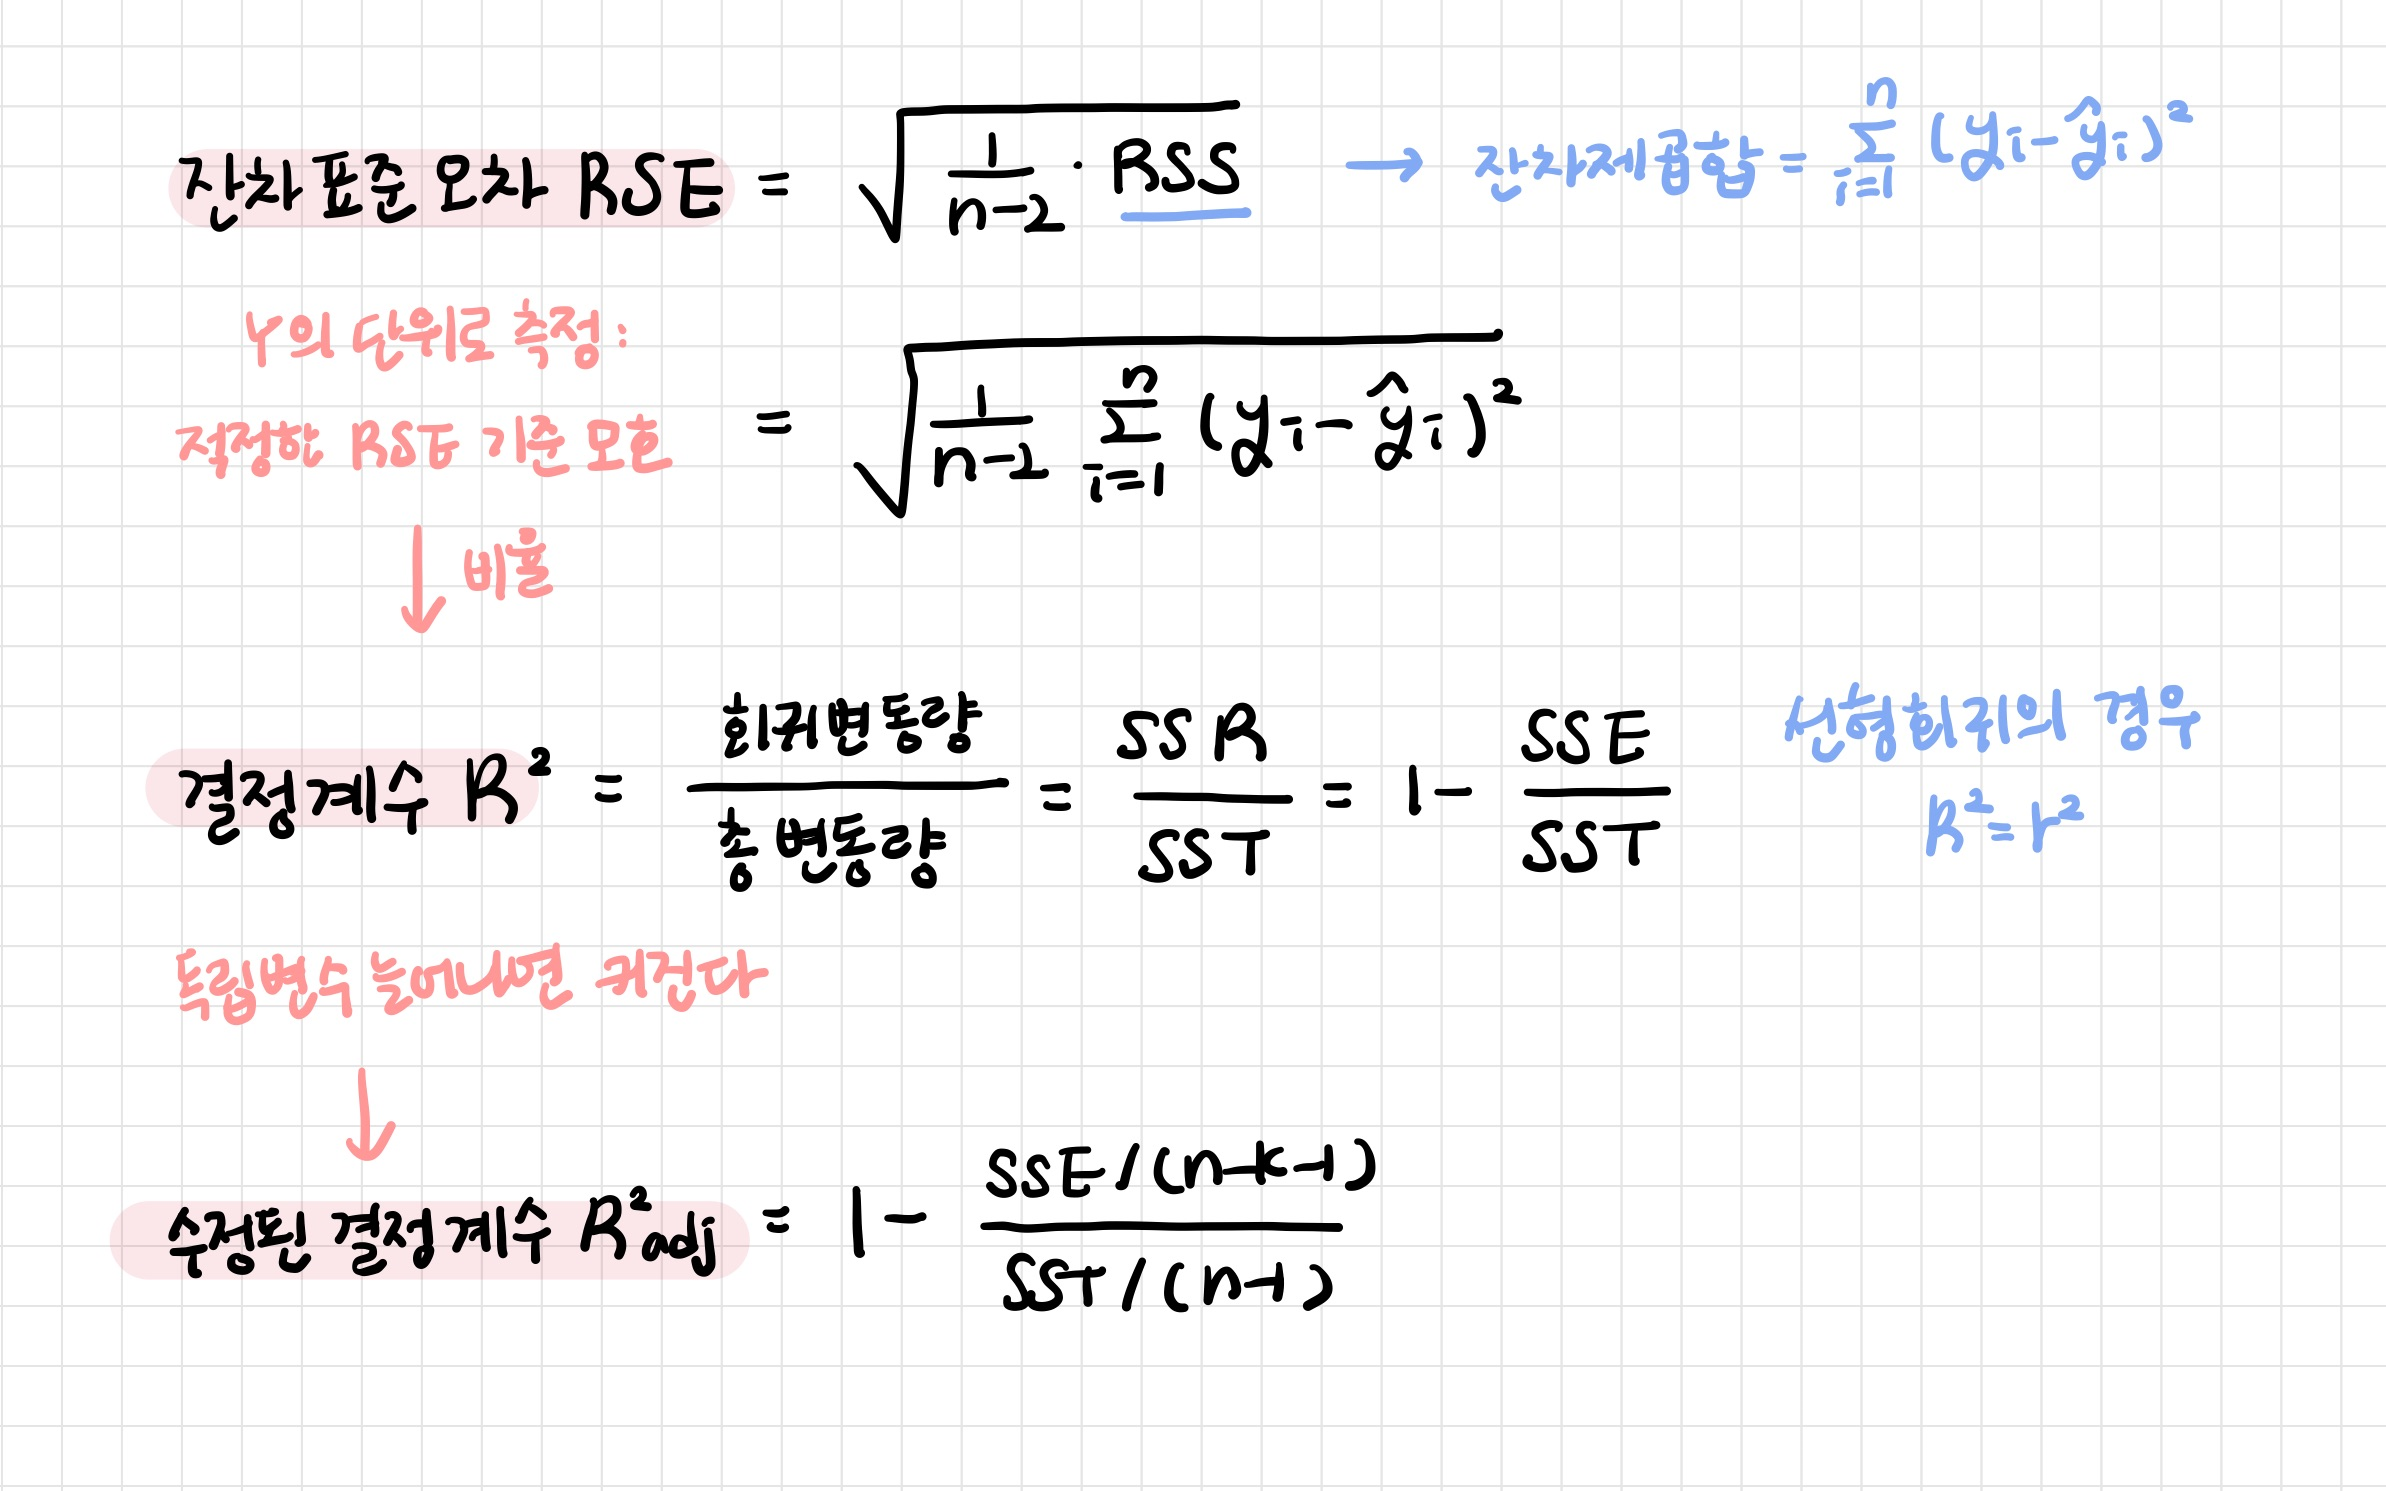 잔차 표준 오차 RSE = √(1/(n-2) · RSS) → 잔차제곱합 = Σ_{i=1}^{n} (y_i - ŷ_i)²
Y의 단위로 측정:
= √(1/(n-2) Σ_{i=1}^{n} (y_i - ŷ_i)²)
적절한 RSE 기준 모호
↓ 비율
결정계수 R² = 회귀변동량/총 변동량 = SSR/SST = 1 - SSE/SST
선형회귀의 경우
R² = r²
독립변수 늘어나면 커진다
↓
수정된 결정계수 R²adj = 1 - (SSE/(n-k-1))/(SST/(n-1))